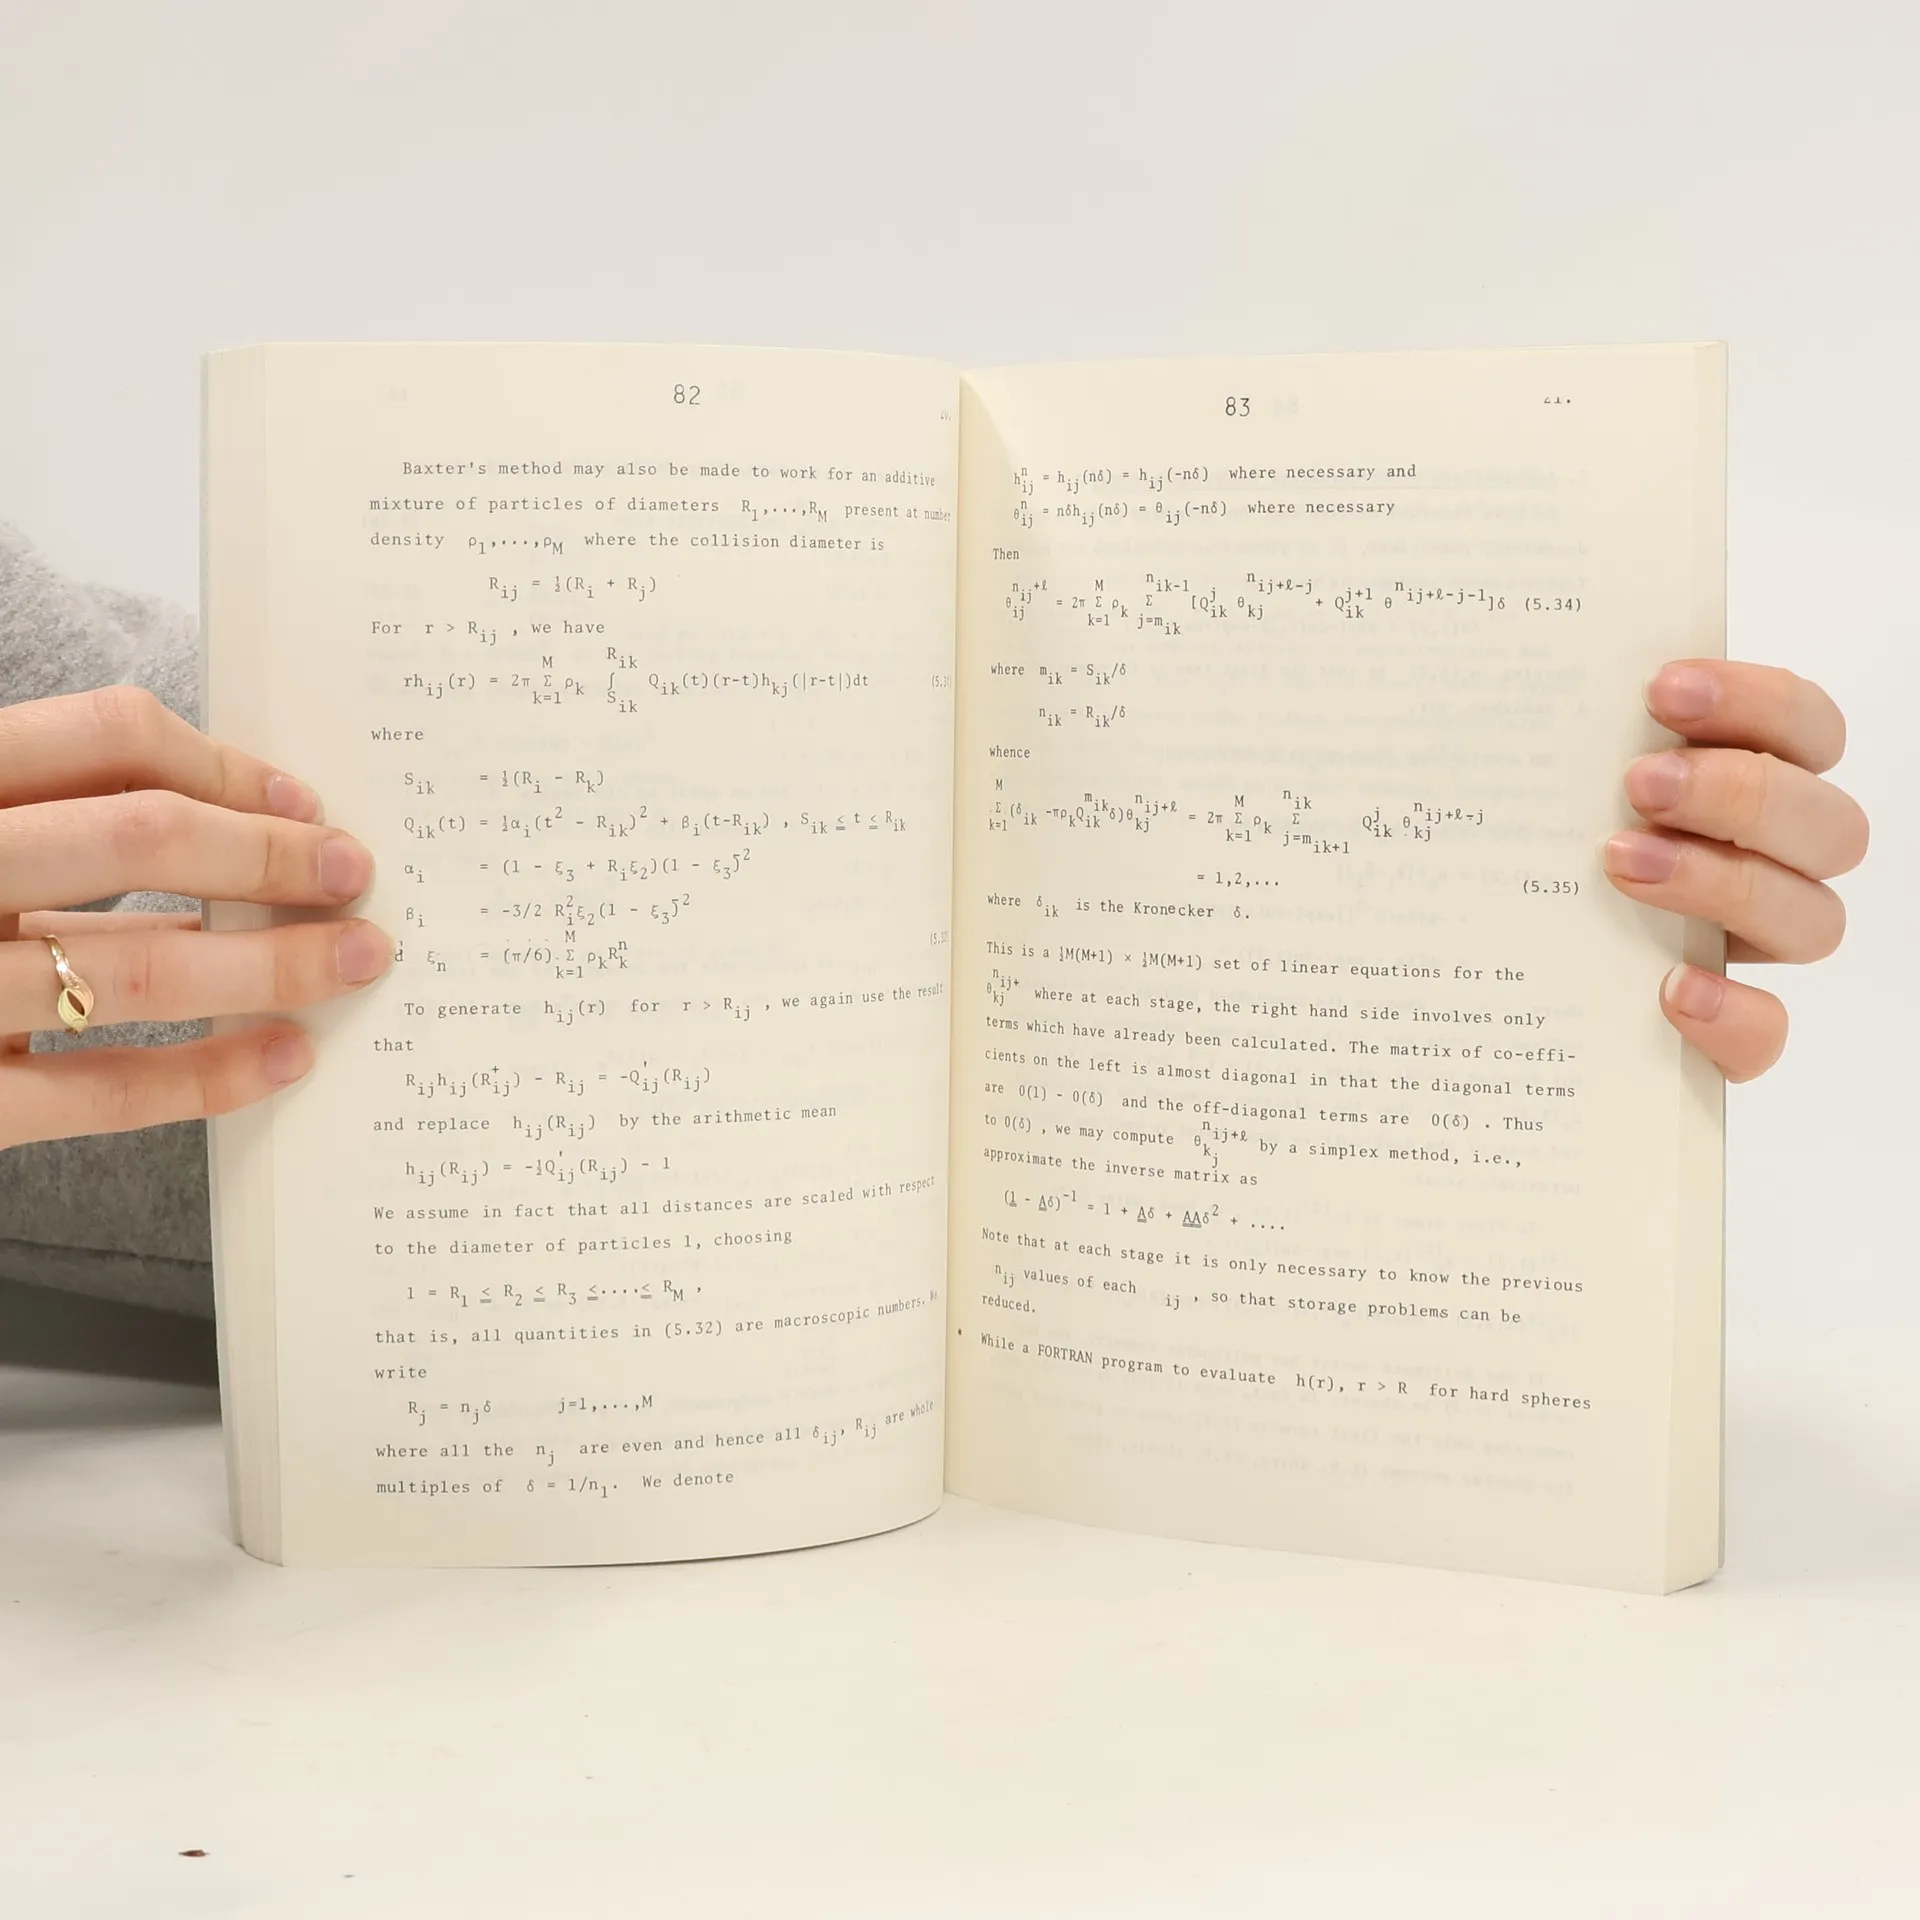 82
Baxter's method may also be made to work for an additive
mixture of particles of diameters R₁,...,R_M present at number
density ρ₁,...,ρ_M where the collision diameter is
R_ij = ½(R_i + R_j)
For r > R_ij , we have
rh_ij(r) = 2π Σ_{k=1}^{M} ρ_k ∫_{S_ik}^{R_ik} Q_ik(t)(r-t)h_kj(|r-t|)dt
where
S_ik = ½(R_i - R_k)
Q_ik(t) = ½α_i(t² - R_ik)² + β_i(t-R_ik) , S_ik ≤ t ≤ R_ik
α_i = (1 - ξ₃ + R_iξ₂)(1 - ξ₃)²
β_i = -3/2 R_i²ξ₂(1 - ξ₃)²
ξ_n = (π/6) Σ_{k=1}^{M} ρ_kR_k^n
To generate h_ij(r) for r > R_ij , we again use the result
that
R_ijh_ij(R_ij^+) - R_ij = -Q'_ij(R_ij)
and replace h_ij(R_ij) by the arithmetic mean
h_ij(R_ij) = -½Q'_ij(R_ij) - 1
We assume in fact that all distances are scaled with respect
to the diameter of particles 1, choosing
1 = R₁ ≤ R₂ ≤ R₃ ≤....≤ R_M ,
that is, all quantities in (5.32) are macroscopic numbers. We
write
R_j = n_jδ j=1,...,M
where all the n_j are even and hence all δ_ij, R_ij are whole
multiples of δ = 1/n₁. We denote
83
h_ij^n = h_ij(nδ) = h_ij(-nδ) where necessary and
θ_ij^n = nδh_ij(nδ) = θ_ij(-nδ) where necessary
Then
θ_ij^{n_ij+ℓ} = 2π Σ_{k=1}^{M} ρ_k Σ_{j=m_ik}^{n_ik-1} [Q_ik^j θ_kj^{n_ij+ℓ-j} + Q_ik^{j+1} θ^{n_ij+ℓ-j-1}]δ (5.34)
where m_ik = S_ik/δ
n_ik = R_ik/δ
whence
Σ_{k=1}^{M} (δ_ik -πρ_kQ_ik^{m_ik}δ)θ_kj^{n_ij+ℓ} = 2π Σ_{k=1}^{M} ρ_k Σ_{j=m_ik+1}^{n_ik} Q_ik^j θ_kj^{n_ij+ℓ-j}
= 1,2,... (5.35)
where δ_ik is the Kronecker δ.
This is a ½M(M+1) × ½M(M+1) set of linear equations for the
θ_kj^{n_ij+} where at each stage, the right hand side involves only
terms which have already been calculated. The matrix of co-effi-
cients on the left is almost diagonal in that the diagonal terms
are 0(1) - 0(δ) and the off-diagonal terms are 0(δ) . Thus
to 0(δ) , we may compute θ_kj^{n_ij+ℓ} by a simplex method, i.e.,
approximate the inverse matrix as
(1 - Aδ)⁻¹ = 1 + Aδ + AAδ² + ....
Note that at each stage it is only necessary to know the previous
n_ij values of each ij , so that storage problems can be
reduced.
While a FORTRAN program to evaluate h(r), r > R for hard spheres